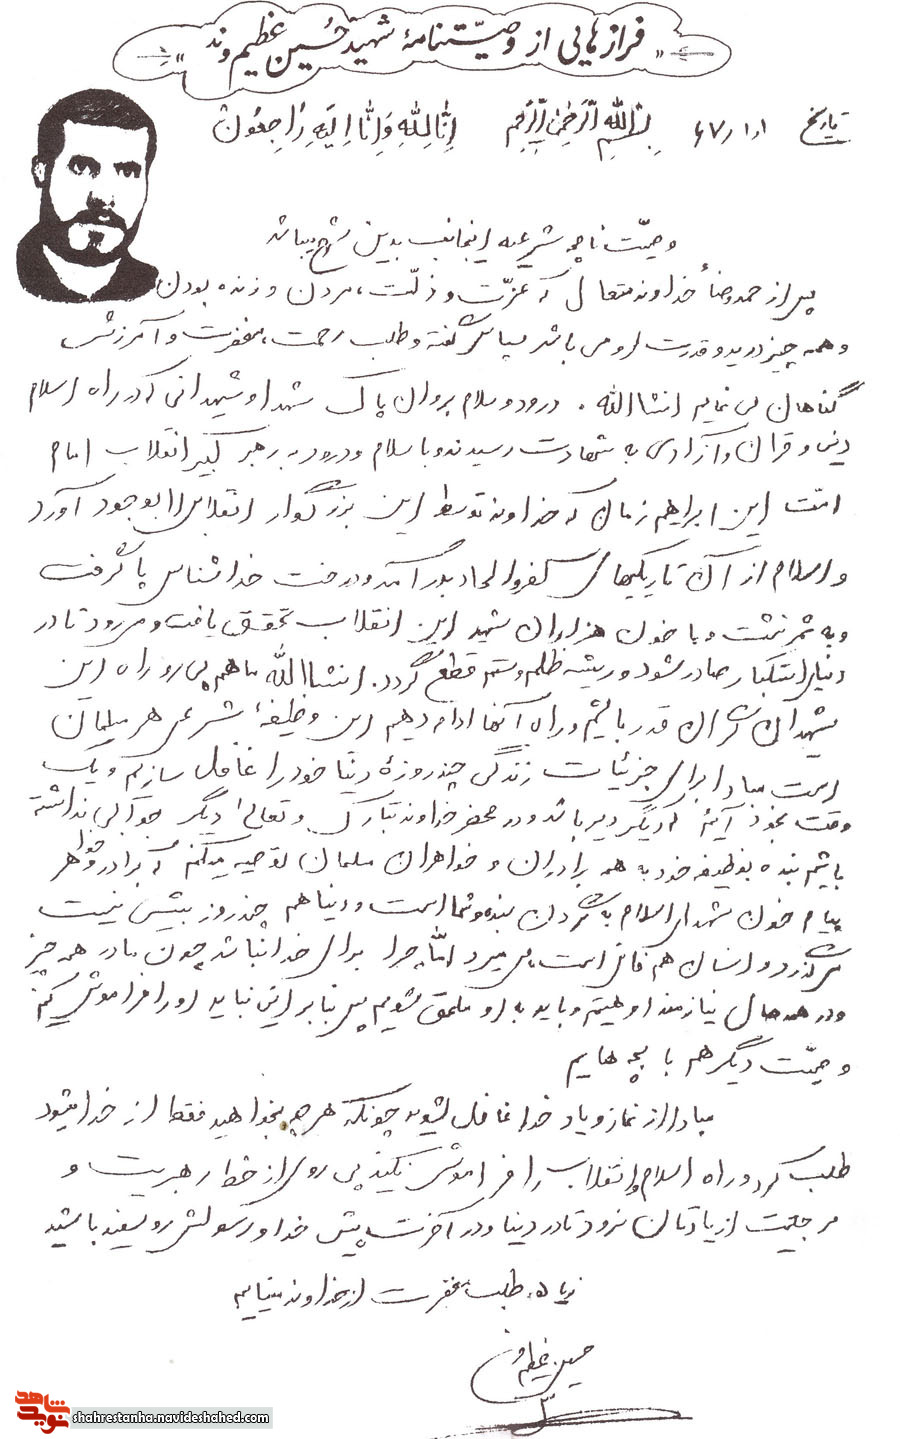 فرازهایی از وصیّتنامهٔ شهید حُسین عظیم‌وند
تاریخ ۶۷/۱/۱ بسم الله الرحمن الرحیم اِنّا لِلّهِ وَ اِنّا اِلَیهِ رٰاجِعُون
وصیّت نامچه شرعیه اینجانب بدین شرح میباشد
پس از حمد و ثنأ خداوند متعال که عزّت و ذلّت، مردن و زنده بودن
و همه چیز در ید و قدرت او می باشد سپاس گفته و طلب رحمت، مغفرت و آمرزش
گناهان می نمایم انشاالله. درود و سلام بروان پاک شهدا و شهیدانی که در راه اسلام
دین و قرآن و آزادی به شهادت رسیدند و با سلام و درود به رهبر کبیر انقلاب امام
امّت این ابراهیم زمان که خداوند توسط این بزرگوار انقلاب را بوجود آورد
و اسلام از آن تاریکیهای کفر و الحاد بدر آمد و درخت خداشناسی پا گرفت
و به ثمر نشست و با خون هزاران شهید این انقلاب تحقق یافت و می رود تا در
دنیای استکبار صادر شود و ریشه ظلم و ستم قطع گردد. انشاالله ما هم پی رو راه این
شهیدان گران قدر باشیم و راه آنها ادامه دهیم این وظیفهٔ شرعی هر مسلمان
است مبادا برای جزئیات زندگی چند روزهٔ دنیا خود را غافل سازیم و یک
وقت بخود آئیم که دیگر دیر باشد و در محضر خداوند تبارک و تعالی دیگر جوابی نداشته
باشیم بنده بوظیفه خود به همه برادران و خواهران مسلمان توصیه میکنم که برادر و خواهر
پیام خون شهدای اسلام به گردن بنده و شما است و دنیا هم چند روز بیش نیست
می گذرد و انسان هم فانی است، می میرد امّا چرا برای خدا نباشد چون ما در همه چیز
و در همه حال نیازمند او هستیم و باید به او ملحق شویم پس بنابراین نباید او را فراموش کنیم
وصیّت دیگر هم با بچه هایم
مبادا از نماز و یاد خدا غافل شوید چونکه هر چه بخواهید فقط از خدا میشود
طلب کرد و راه اسلام و انقلاب را فراموش نکنید پی روی از خط رهبریت و
مرجعیت از یادتان نرود تا در دنیا و در آخرت پیش خدا و رسولش رو سفید باشید
زیاده، طلب مغفرت از خداوند مینمایم
حسین عظیم وند
نوید شاهد
shahrestanha.navideshahed.com